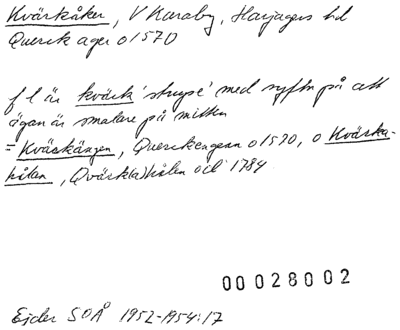 Kvärkåker, V Karaby, Harjagers hd
Querck ager o 1570
f l är kvärk 'strupe' med syftn på att
ägan är smalare på mitten
= Kvärkängen, Querckengenn o 1570, o Kvärka-
hålan, Qvärk(a)hålen och 1784
00028002
Ejder SOÅ 1952-1954:17